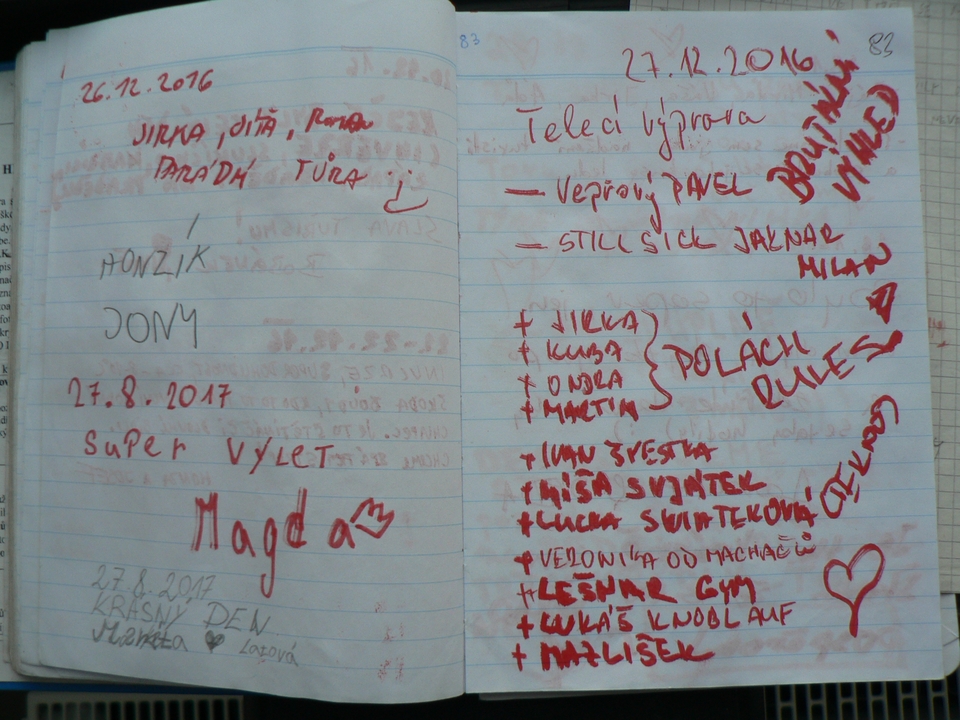 26.12.2016
JIRKA, DÍŤA, Roman
PARÁDNÍ TŮRA :)
HONZÍK
JONY
27.8.2017
SuPeR VÝLET
Magda
27.8.2017
KRÁSNÝ DEN
Markéta Lazová
83
83
27.12.2016
Telecí výprava
BRUTÁLNÍ
VÝHLED
– Vepřový PAVEL
– STILL SICK JAKNAR
MILAN
+ JIRKA
+ KUBA
+ ONDRA
+ MARTIN
POLÁCH
RULES
+ IVAN ŠVESTKA
+ MÍŠA SVJÁTEK
+ LUCKA SWIATEKOVÁ
+ VERONIKA OD MACHAČŮ
+ LEŠNAR GYM
+ LUKÁŠ KNOBLAUF
+ MAZLIŠEK